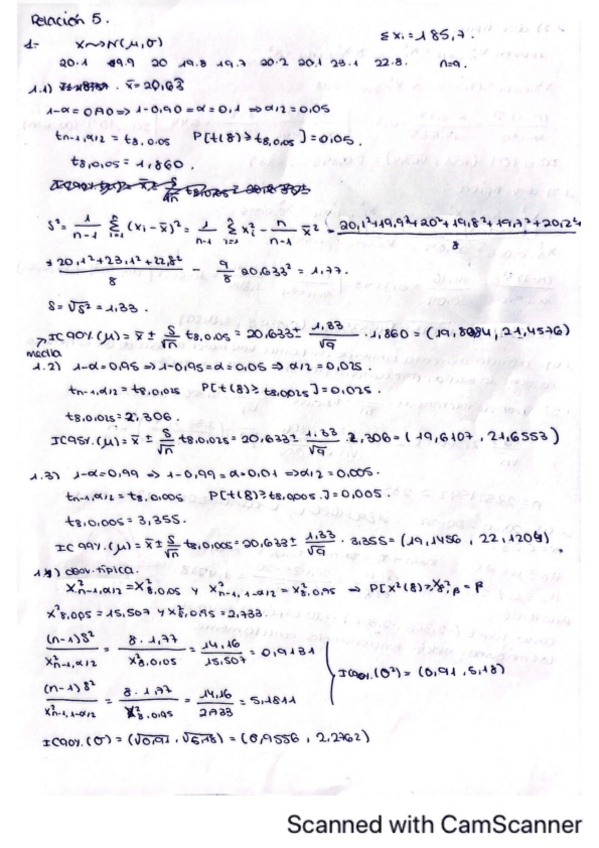 Relación 5.
1- X~>N(μ,σ) Σxi=185,7.
20.1 19.9 20 19.8 19.7 20.2 20.1 23.1 22.8. n=9.
1.1) x̄=20,63
1-α=0,90=>1-0,90=α=0,1 => α/2=0,05
tn-1,α/2 = t8,0,05 P[t(8)≥t8,0,05]=0,05.
t8,0,05= 1,860.
S²= 1/(n-1) Σ(xi-x̄)² = 1/(n-1) Σ xi² - n/(n-1) x̄² = (20,1²+19,9²+20²+19,8²+19,7²+20,2²+
+ 20,1²+23,1²+22,8²)/8 - 9/8 20,633² = 1,77.
S=√S² = 1,33.
IC90%(μ)= x̄ ± S/√n t8,0,05 = 20,633± 1,33/√9 · 1,860 = (19,8084, 21,4576)
media
1.2) 1-α=0,95 => 1-0,95=α=0,05 => α/2=0,025.
tn-1,α/2= t8,0,025 P[t(8)≥ t8,0,025]=0,025.
t8,0,025= 2,306.
IC95%(μ)= x̄ ± S/√n t8,0,025= 20,633± 1,33/√9 · 2,306=(19,6107, 21,6553)
1.3) 1-α=0,99 => 1-0,99=α=0,01 =>α/2=0,005.
tn-1,α/2= t8,0,005 P[t(8)≥t8,0,005.]=0,005.
t8,0,005= 3,355.
IC99%(μ)= x̄± S/√n t8,0,005=20,633± 1,33/√9 · 3,355=(19,1456, 22,1204).
1.4) desv. típica.
X²n-1,α/2=X²8,0,05 y X²n-1,1-α/2=X²8,0,95 => P[X²(8)≥X²8,β = β
X²8,0,05=15,507 y X²8,0,95= 2,733.
(n-1)S²/X²n-1,α/2 = 8·1,77/X²8,0,05 = 14,16/15,507 = 0,9131
IC90%(σ²)= (0,91, 5,18)
(n-1)S²/X²n-1,1-α/2 = 8·1,77/X²8,0,95 = 14,16/2,733 = 5,1811
IC90%(σ)= (√0,91, √5,18) = (0,9556, 2,2762)
Scanned with CamScanner